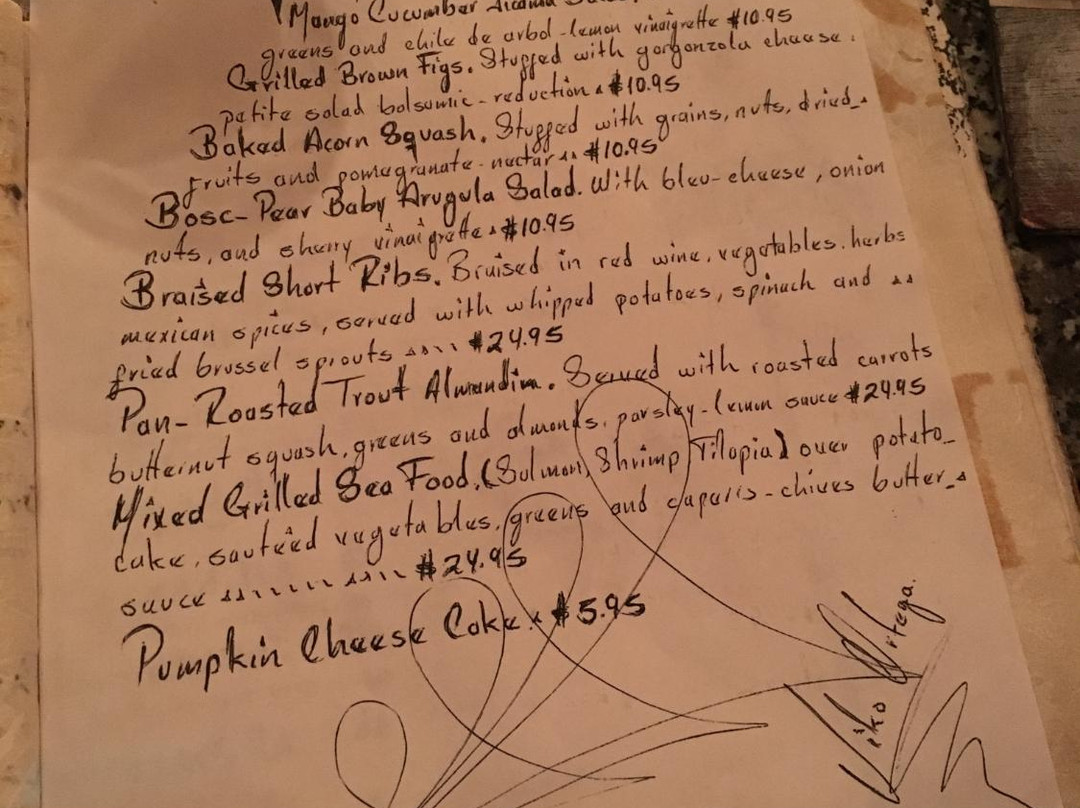 Mango Cucumber Jicama
greens and chile de arbol-lemon vinaigrette $10.95
Grilled Brown Figs. Stuffed with gorgonzola cheese.
petite salad bolsamic-reduction $10.95
Baked Acorn Squash. Stuffed with grains, nuts, dried
fruits and pomegranate-nectar $10.95
Bosc-Pear Baby Arugula Salad. With bleu-cheese, onion
nuts, and sherry vinaigrette $10.95
Braised Short Ribs. Braised in red wine, vegetables, herbs
mexican spices, served with whipped potatoes, spinach and
fried brussel sprouts $24.95
Pan-Roasted Trout Almandin. Served with roasted carrots
butternut squash, greens and almonds, parsley-lemon sauce $24.95
Mixed Grilled Sea Food. (Salmon, Shrimp, Tilapia) over potato
cake, sautéed vegetables, greens and caperis-chives butter
sauce $24.95
Pumpkin Cheese Cake. $5.95
Kiko Ortega.